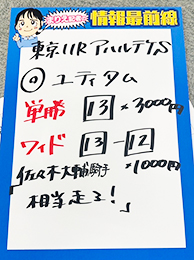 とりま記者 情報最前線
東京11R アハルテケS
◎ ユティタム
単勝 13 × 3000円
ワイド 13-12 × 1000円
「佐々木大輔騎手
相当走る!」